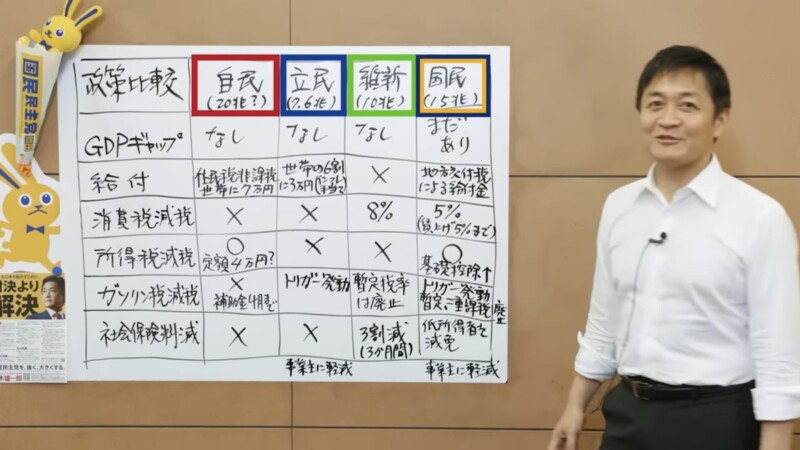 国民民主党
政策比較
自民
(20兆?)
立民
(7.6兆)
維新
(10兆)
国民
(15兆)
GDPギャップ
なし
なし
なし
まだ
あり
給付
住民税非課税
世帯に7万円
世帯の6割
に3万円
×
地方交付税
による給付金
消費税減税
×
×
8%
5%
(賃上げ5%まで)
所得税減税
○
定額4万円?
×
×
○
基礎控除↑
ガソリン税減税
×
補助金4月まで
トリガー発動
暫定税率
は廃止
トリガー発動
暫定、二重課税
廃止
社会保険料減
×
×
3割減
(3か月間)
低所得者を
減免
事業主に軽減
事業主に軽減
対決より
解決